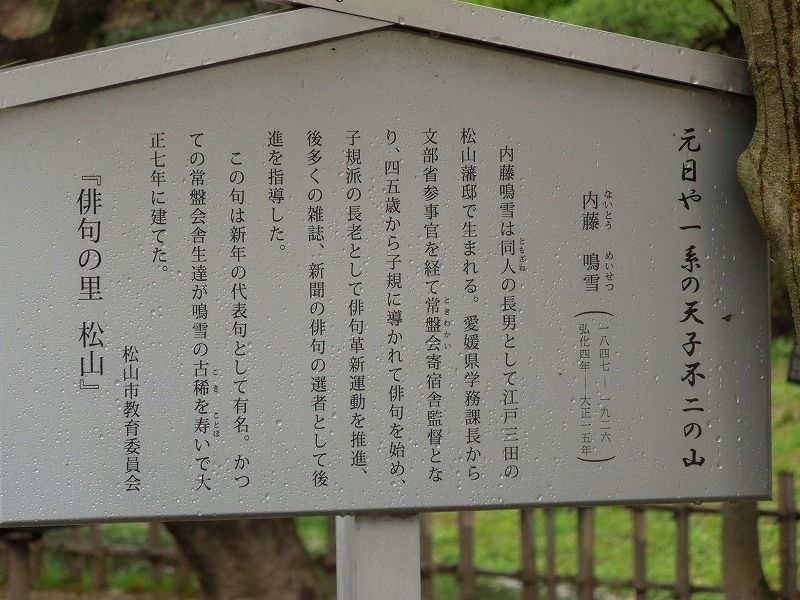 元日や一系の天子不二の山
ないとう めいせつ
内藤 鳴雪(一八四七―一九二六 弘化四年―大正一五年)
ともざね
内藤鳴雪は同人の長男として江戸三田の
松山藩邸で生まれる。愛媛県学務課長から
ときわかい
文部省参事官を経て常盤会寄宿舎監督とな
り、四五歳から子規に導かれて俳句を始め、
子規派の長老として俳句革新運動を推進、
後多くの雑誌、新聞の俳句の選者として後
進を指導した。
この句は新年の代表句として有名。かつ
こき ことほ
ての常盤会舎生達が鳴雪の古稀を寿いで大
正七年に建てた。
松山市教育委員会
『俳句の里 松山』